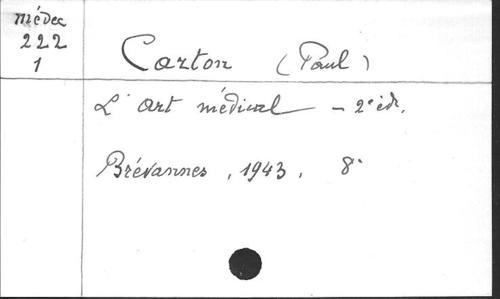 médec
222
1
Carton (Paul)
L'art médical - 2e éd.
Brévannes, 1943, 8°